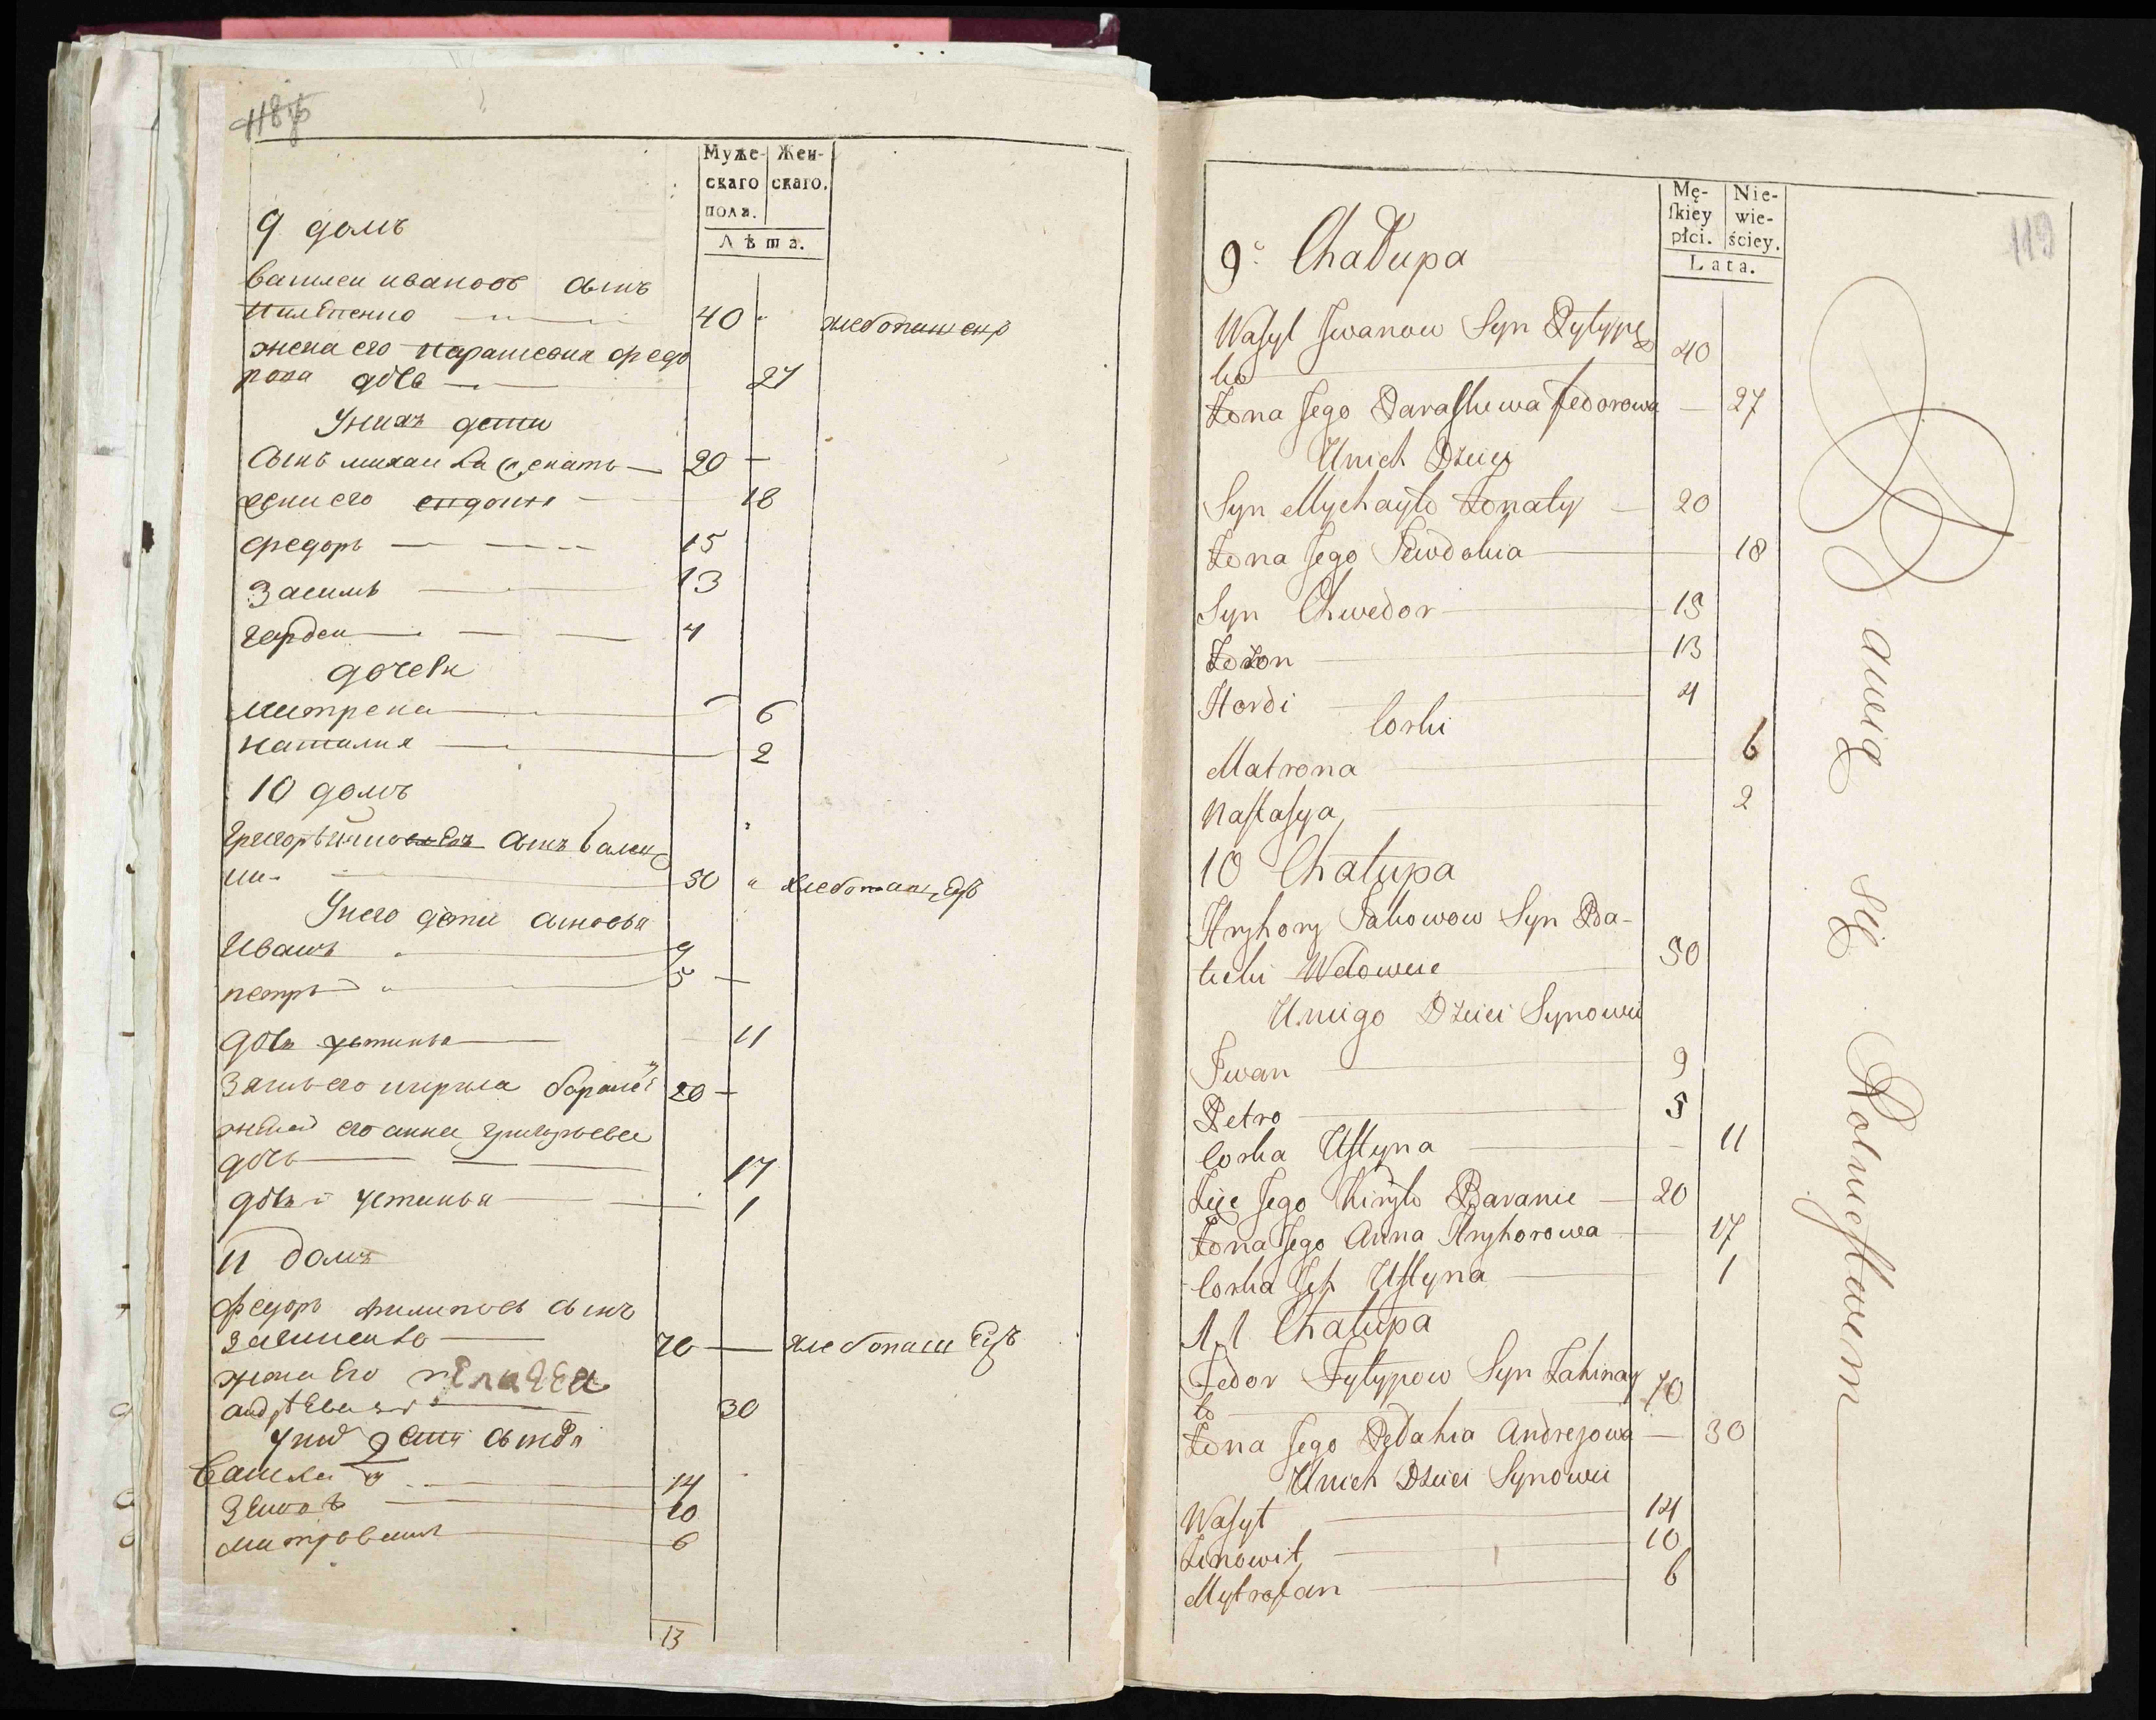 118
Муже-
скаго
пола.
Жен-
скаго.
Лѣта.
9 домъ
Василеи ивановъ сынъ
Пилѣпенко 40 хлебопашецъ
жена его Парасковия федо
рова дочь 27
Унихъ дети
Сынъ михаила женатъ 20
жена его евдокия 18
федоръ 15
Зосимъ 13
Гордеи 4
дочери
митрена 6
Наталия 2
10 домъ
50 хлебопашецъ
Унего дети синовья
Иванъ 9
петръ 5
дочь устинья 11
Зять его кирила 20
жена его анна григорьева
дочь 17
дочь устинья 1
11 домъ
федоръ филиповъ сынъ
70 хлебопашецъ
жена Его пелагея
30
14
10
6
13
119
Mę-
ſkiey
płci.
Nie-
wie-
ściey.
Lata.
9 Chałupa
Waſyl Jwanow Syn Pylype
ko 40
Żona Jego Paraſkewa Fedorowa 27
Unich Dzieci
Syn Mychayło Żonaty 20
Żona Jego Jewdokia 18
Syn Chwedor 15
Zozon 13
Hordi 4
Corki
Matrona 6
Naſtaſya 2
10 Chałupa
Hryhory Jakowow Syn Ba-
licki Wdowiec 50
Uniego Dzieci Synowie
Jwan 9
Petro 5
Corka Uſtyna 11
Zięć Jego Kiryło Baranie 20
Żona Jego Anna Hryhorowa 17
Corka Jch Uſtyna 1
11 Chałupa
Fedor Fylypow Syn Zahinay
ło 70
Żona Jego Pełahia Andrejowa 30
Unich Dzieci Synowie
Waſyl 14
Zenowi 10
Mytrofan 6
Bawią się Rolnictwem